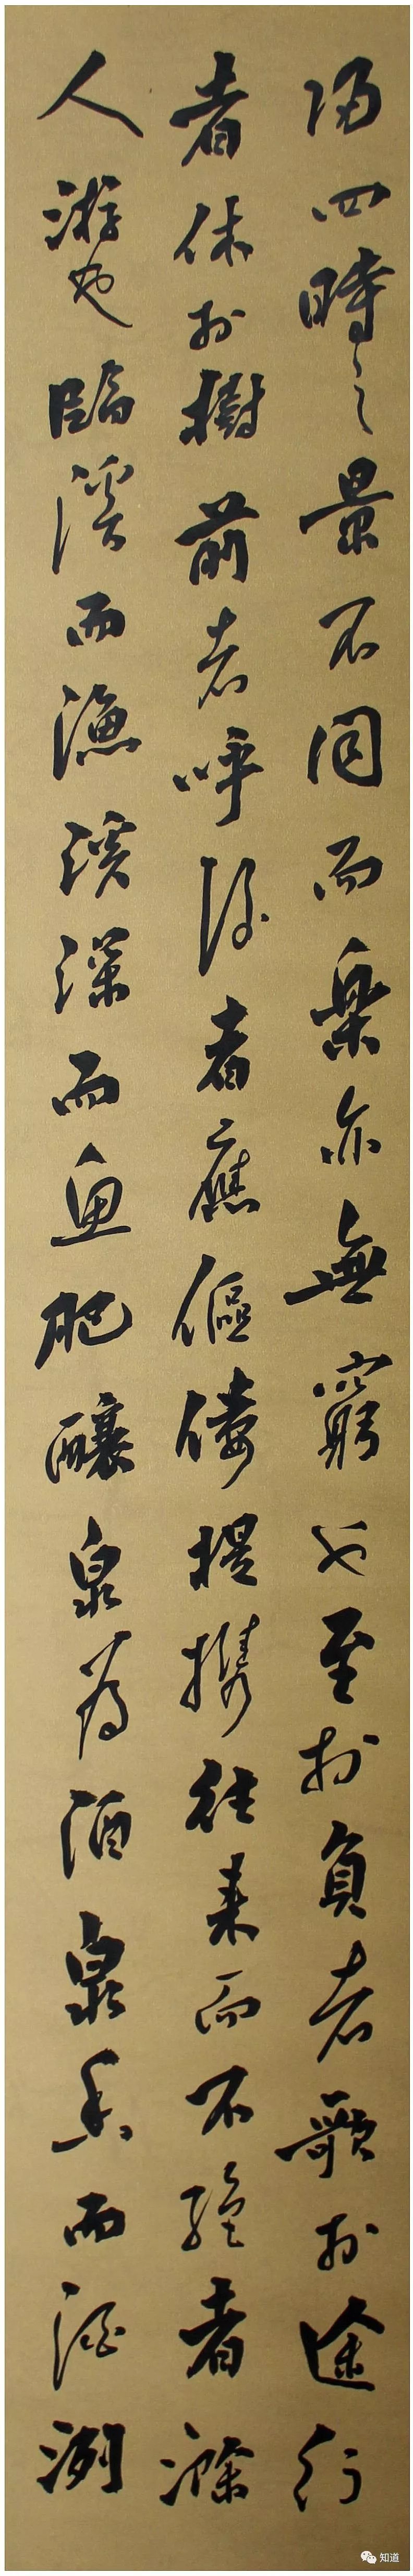 歸四時之景不同而樂亦無窮也至於負者歌於途行
者休於樹前者呼後者應傴僂提攜往來而不絕者滁
人游也臨溪而漁溪深而魚肥釀泉為酒泉香而酒洌
知道